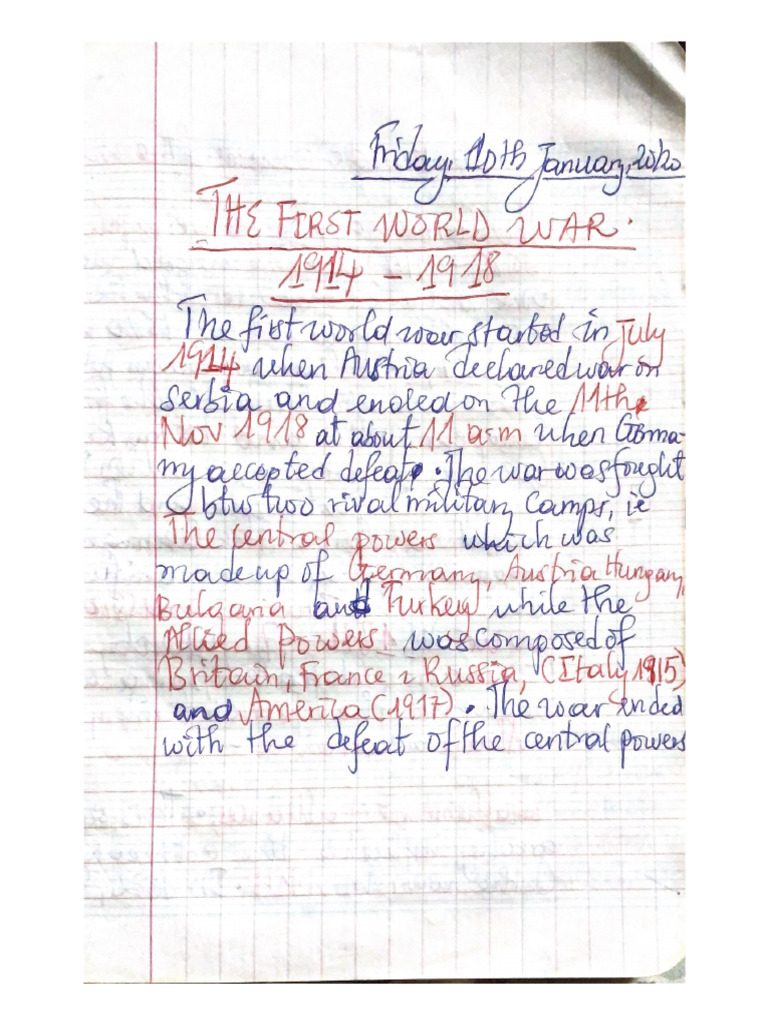 Friday, 10th January, 2020
THE FIRST WORLD WAR.
1914 - 1918
The first world war started in July
1914 when Austria declared war on
Serbia and ended on the 11th,
Nov 1918 at about 11 a.m when Germa-
ny accepted defeat. The war was fought
btw two rival military camps, ie
The central powers which was
made up of Germany, Austria Hungary,
Bulgaria and Turkey while the
Allied Powers was composed of
Britain, France & Russia, (Italy 1915)
and America (1917). The war ended
with the defeat of the central powers